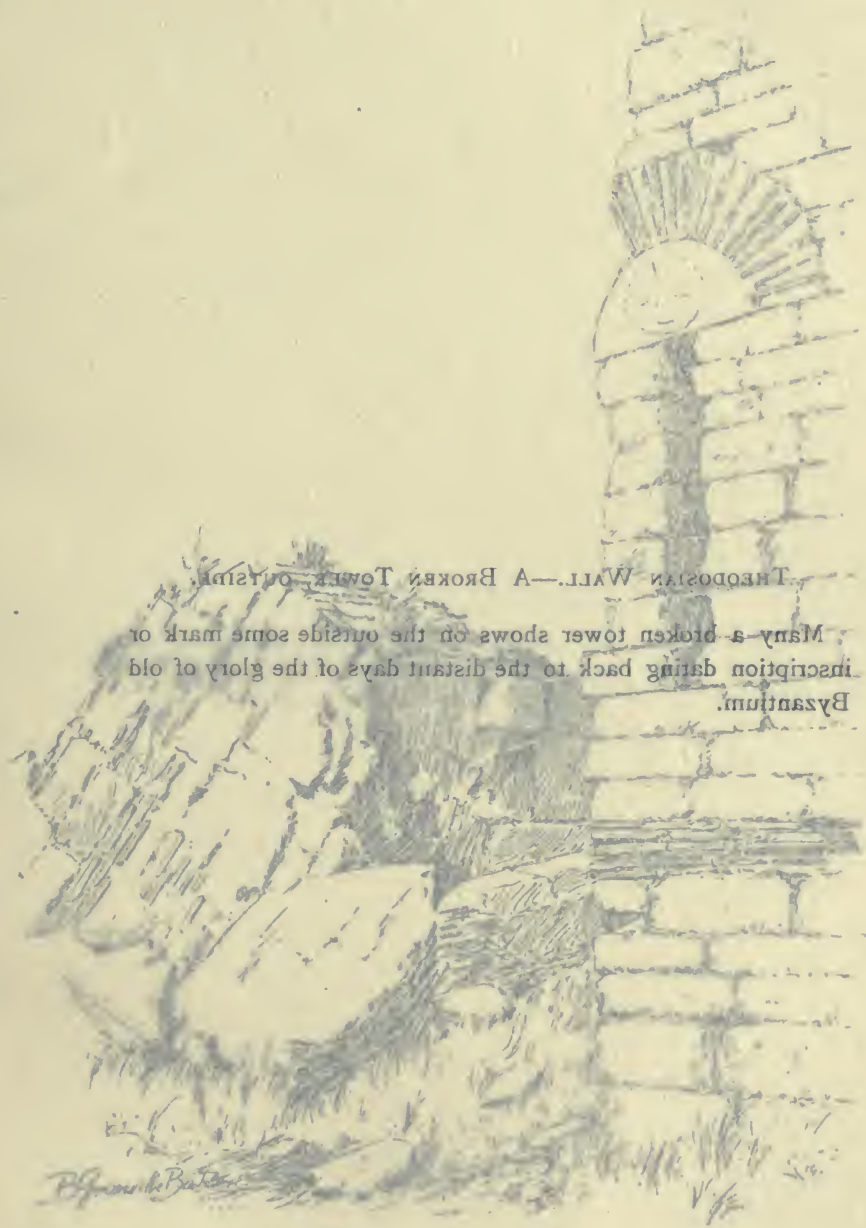 THEODOSIAN WALL.—A BROKEN TOWER, OUTSIDE.
Many a broken tower shows on the outside some mark or
inscription dating back to the distant days of the glory of old
Byzantium.